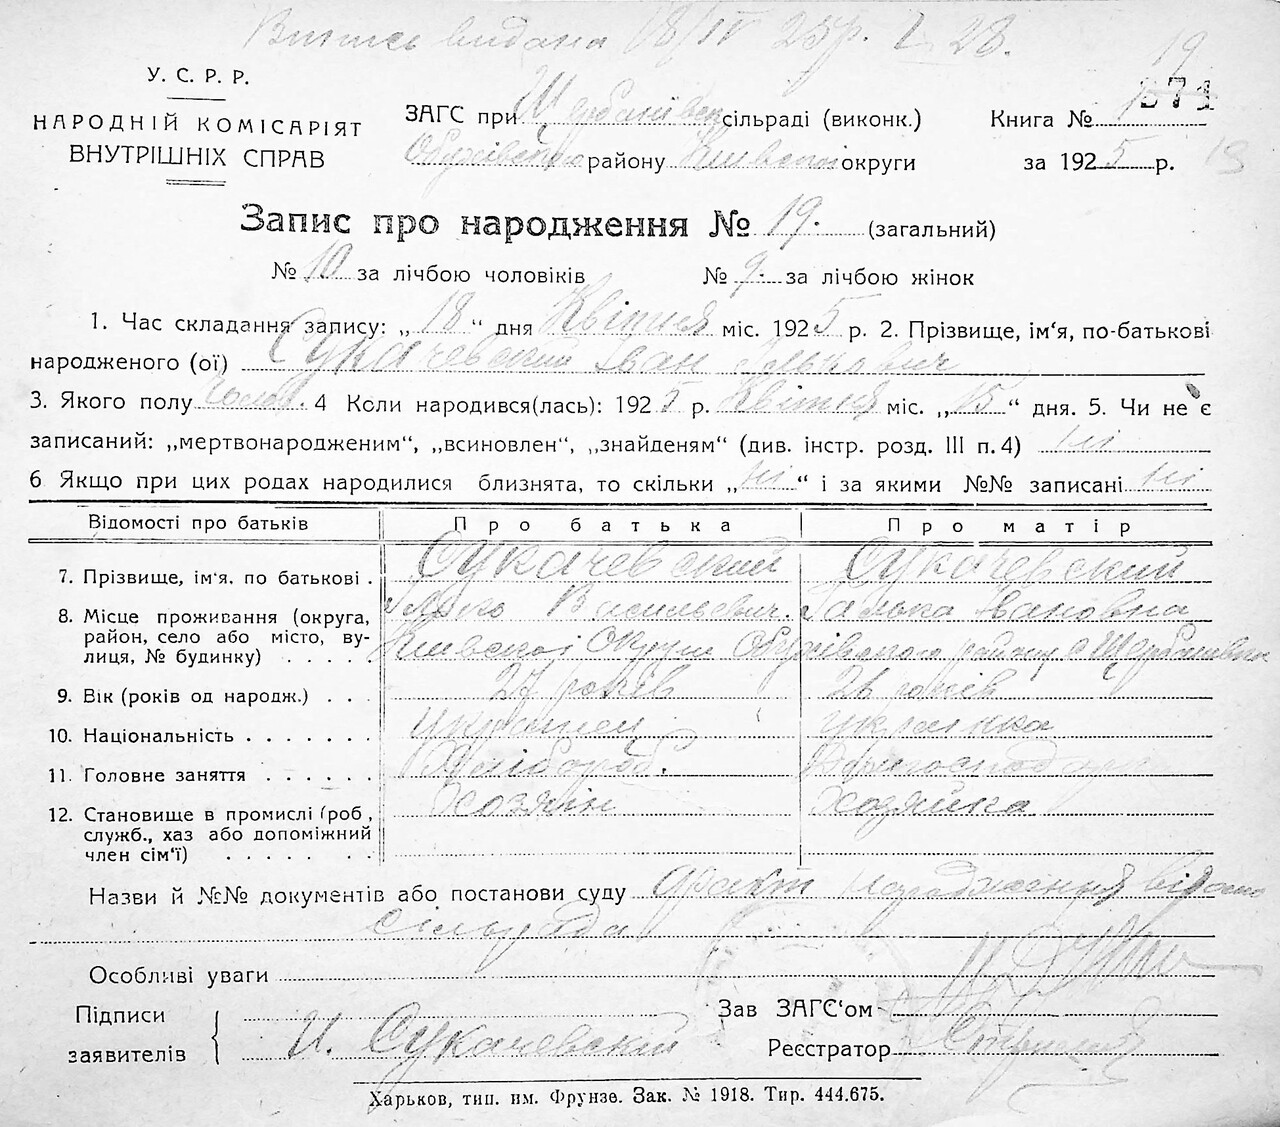 Випись видана 18/IV 25р. 28.
У. С. Р. Р.
НАРОДНІЙ КОМІСАРІЯТ
ВНУТРІШНІХ СПРАВ
ЗАГС при Щербанівск сільраді (виконк.)
Обухівського району Київської округи
19
371
Книга №
за 1925 р.
Запис про народження № 19. (загальний)
№ 10 за лічбою чоловіків № 9. за лічбою жінок
1. Час складання запису: „18“ дня Квітня міс. 1925 р. 2. Прізвище, ім'я, по-батькові
народженого (ої) Сукачевский Іван Ількович
3. Якого полу чолов. 4 Коли народився(лась): 1925 р. Квітня міс. „15“ дня. 5. Чи не є
записаний: „мертвонародженим“, „всиновлен“, „знайденям“ (див. інстр. розд. III п. 4) ні
6 Якщо при цих родах народилися близнята, то скільки „ні“ і за якими №№ записані ні
Відомості про батьків Про батька Про матір
7. Прізвище, ім'я. по батькові . Сукачевский Сукачевский
Илько Васильевич. Галька Івановна
8. Місце проживання (округа,
район, село або місто, ву-
лиця, № будинку) . . . . Київської Округи Обухівського району с Щербанівка
9. Вік (років од народж.) . . . 27 років 26 років
10. Національність . . . . . . . Українец українка
11. Головне заняття . . . . . . Хлібороб.
12. Становище в промислі (роб, Хозяїн Хозяйка
служб., хаз або допоміжний
член сім'ї) . . . . . . .
Назви й №№ документів або постанови суду факт народження відомо
сільрада
Особливі уваги
Підписи
заявителів И. Сукачевский
Зав ЗАГС'ом
Реєстратор
Харьков, тип. им. Фрунзе. Зак. № 1918. Тир. 444.675.